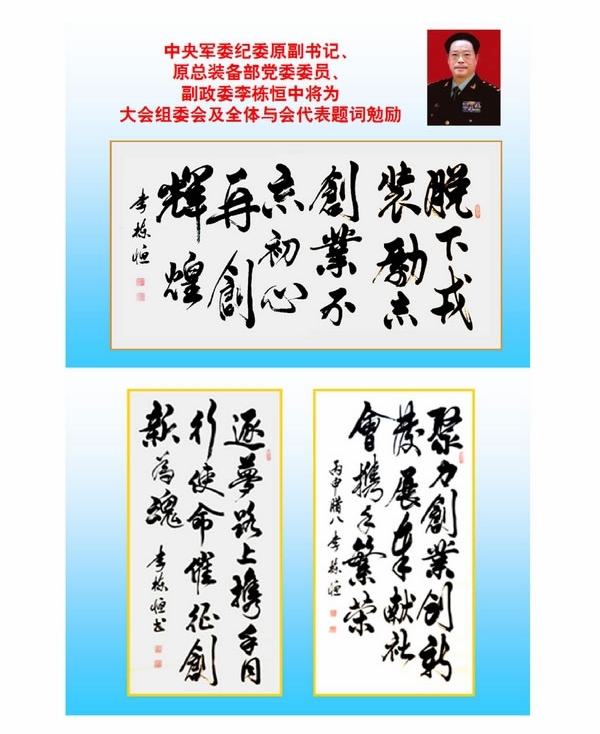 中央军委纪委原副书记、
原总装备部党委委员、
副政委李栋恒中将为
大会组委会及全体与会代表题词勉励
脱下戎
装勵志
創業不
忘初心
再創
輝煌
李栋恒
逐夢路上携手同
行使命催征創
新為魂
李栋恒书
聚力創業创新
發展奉献社
會携手繁荣
丙申腊八李栋恒